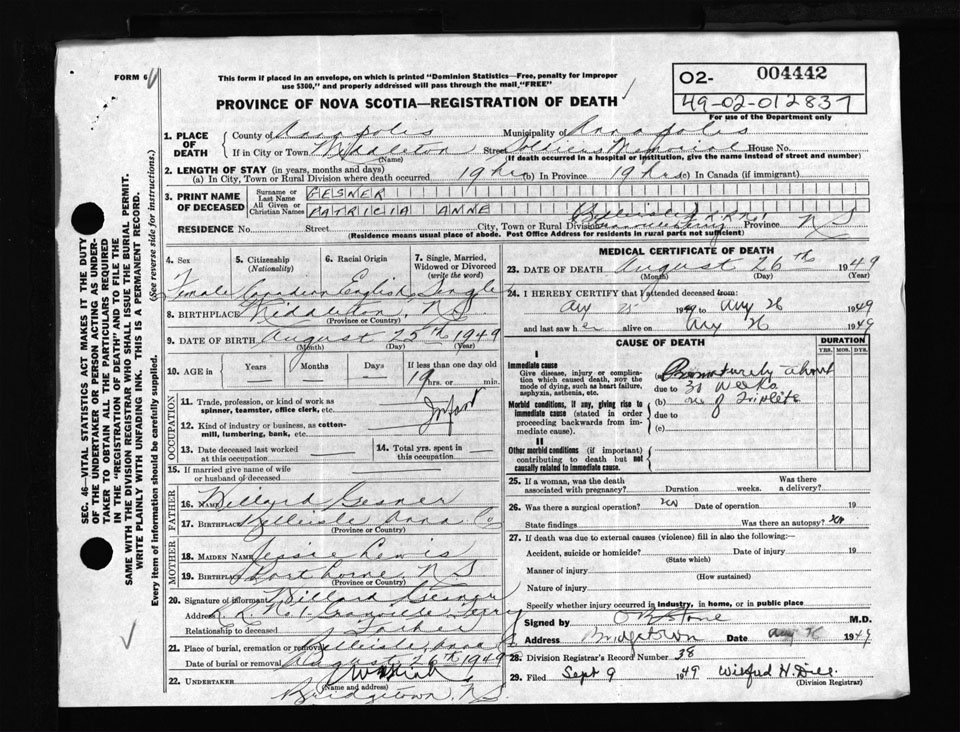 FORM 6
This form if placed in an envelope, on which is printed "Dominion Statistics—Free, penalty for improper
use $300," and properly addressed will pass through the mail, "FREE"
PROVINCE OF NOVA SCOTIA—REGISTRATION OF DEATH
02- 004442
49-02-012837
For use of the Department only
SEC. 46—VITAL STATISTICS ACT MAKES IT THE DUTY
OF THE UNDERTAKER OR PERSON ACTING AS UNDER-
TAKER TO OBTAIN ALL THE PARTICULARS REQUIRED
IN THE "REGISTRATION OF DEATH" AND TO FILE THE
SAME WITH THE DIVISION REGISTRAR WHO SHALL ISSUE THE BURIAL PERMIT.
WRITE PLAINLY WITH UNFADING INK. THIS IS A PERMANENT RECORD.
Every item of information should be carefully supplied. (See reverse side for instructions.)
1. PLACE OF DEATH
County of Annapolis Municipality of Annapolis
If in City or Town Middleton Street Soldiers Memorial House No.
(Name) (If death occurred in a hospital or institution, give the name instead of street and number)
2. LENGTH OF STAY (in years, months and days)
(a) In City, Town or Rural Division where death occurred 19 hrs (b) In Province 19 hrs (c) In Canada (if immigrant)
3. PRINT NAME OF DECEASED
Surname or Last Name GESNER
All Given or Christian Names PATRICIA ANNE
RESIDENCE No. Street City, Town or Rural Division Belleisle Province NS
(Residence means usual place of abode. Post Office Address for residents in rural parts not sufficient)
4. Sex Female
5. Citizenship (Nationality) Canadian
6. Racial Origin English
7. Single, Married, Widowed or Divorced (write the word) Single
8. BIRTHPLACE Middleton, NS
(Province or Country)
9. DATE OF BIRTH August 25th 1949
(Month) (Day) (Year)
10. AGE in Years Months Days If less than one day old 19 hrs. or min.
OCCUPATION
11. Trade, profession, or kind of work as spinner, teamster, office clerk, etc. Infant
12. Kind of industry or business, as cotton-mill, lumbering, bank, etc.
13. Date deceased last worked at this occupation
14. Total yrs. spent in this occupation
15. If married give name of wife or husband of deceased
FATHER
16. NAME Willard Gesner
17. BIRTHPLACE Belleisle Anna Co
(Province or Country)
MOTHER
18. MAIDEN NAME Jessie Lewis
19. BIRTHPLACE Port Lorne NS
(Province or Country)
20. Signature of informant Willard Gesner
Address R.R. No 1 Granville Ferry
Relationship to deceased Father
21. Place of burial, cremation or removal Belleisle, Anna Co
Date of burial or removal August 26th 1949
22. UNDERTAKER
(Name and address)
Bridgetown, NS
MEDICAL CERTIFICATE OF DEATH
23. DATE OF DEATH August 26th 1949
(Month) (Day) (Year)
24. I HEREBY CERTIFY that I attended deceased from:
Aug 25 1949 to Aug 26 1949
and last saw her alive on Aug 26 1949
CAUSE OF DEATH DURATION
YRS. MOS. DYS.
I
Immediate cause
Give disease, injury or complication which caused death, not the mode of dying, such as heart failure, asphyxia, asthenia, etc.
Prematurely about
due to 3 weeks
Morbid conditions, if any, giving rise to immediate cause (stated in order proceeding backwards from immediate cause).
(b) one of triplets
due to
(c)
II
Other morbid conditions (if important) contributing to death but not causally related to immediate cause.
25. If a woman, was the death associated with pregnancy? Duration weeks. Was there a delivery?
26. Was there a surgical operation? no Date of operation 19
State findings Was there an autopsy? no
27. If death was due to external causes (violence) fill in also the following:—
Accident, suicide or homicide? Date of injury 19
(State which)
Manner of injury
(How sustained)
Nature of injury
Specify whether injury occurred in industry, in home, or in public place
Signed by Stone M.D.
Address Bridgetown Date Aug 26 1949
28. Division Registrar's Record Number 38
29. Filed Sept 9 1949 Wilfred H. Dill
(Division Registrar)